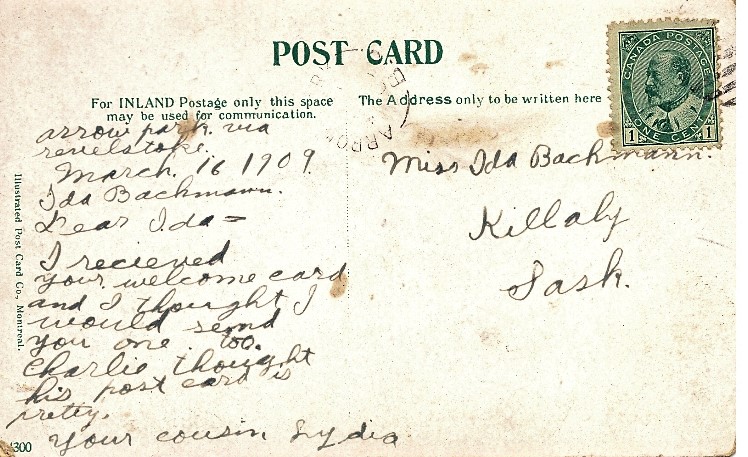 POST CARD
For INLAND Postage only this space
may be used for communication.
The Address only to be written here
CANADA POSTAGE
1 ONE CENT 1
arrow park. via
revelstoke.
March. 16 1909.
Ida Bachmann.
Dear Ida =
I recieved
your welcome card
and I thought I
would send
you one. too.
Charlie thought
his post card is
pretty.
Your cousin Lydia
Miss Ida Bachmann.
Killaly
Sask.
Illustrated Post Card Co., Montreal.
300